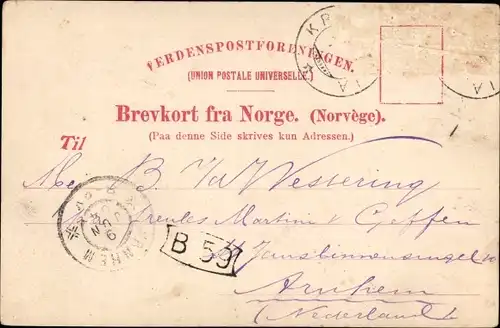 VERDENSPOSTFORENINGEN.
(UNION POSTALE UNIVERSELLE.)
Brevkort fra Norge. (Norvège).
(Paa denne Side skrives kun Adressen.)
Til
B. v/d Wessering
Martini v Geffen
Jansbinnensingel
Arnhem
(Nederland)
ARNHEM
B 59
KR
IA